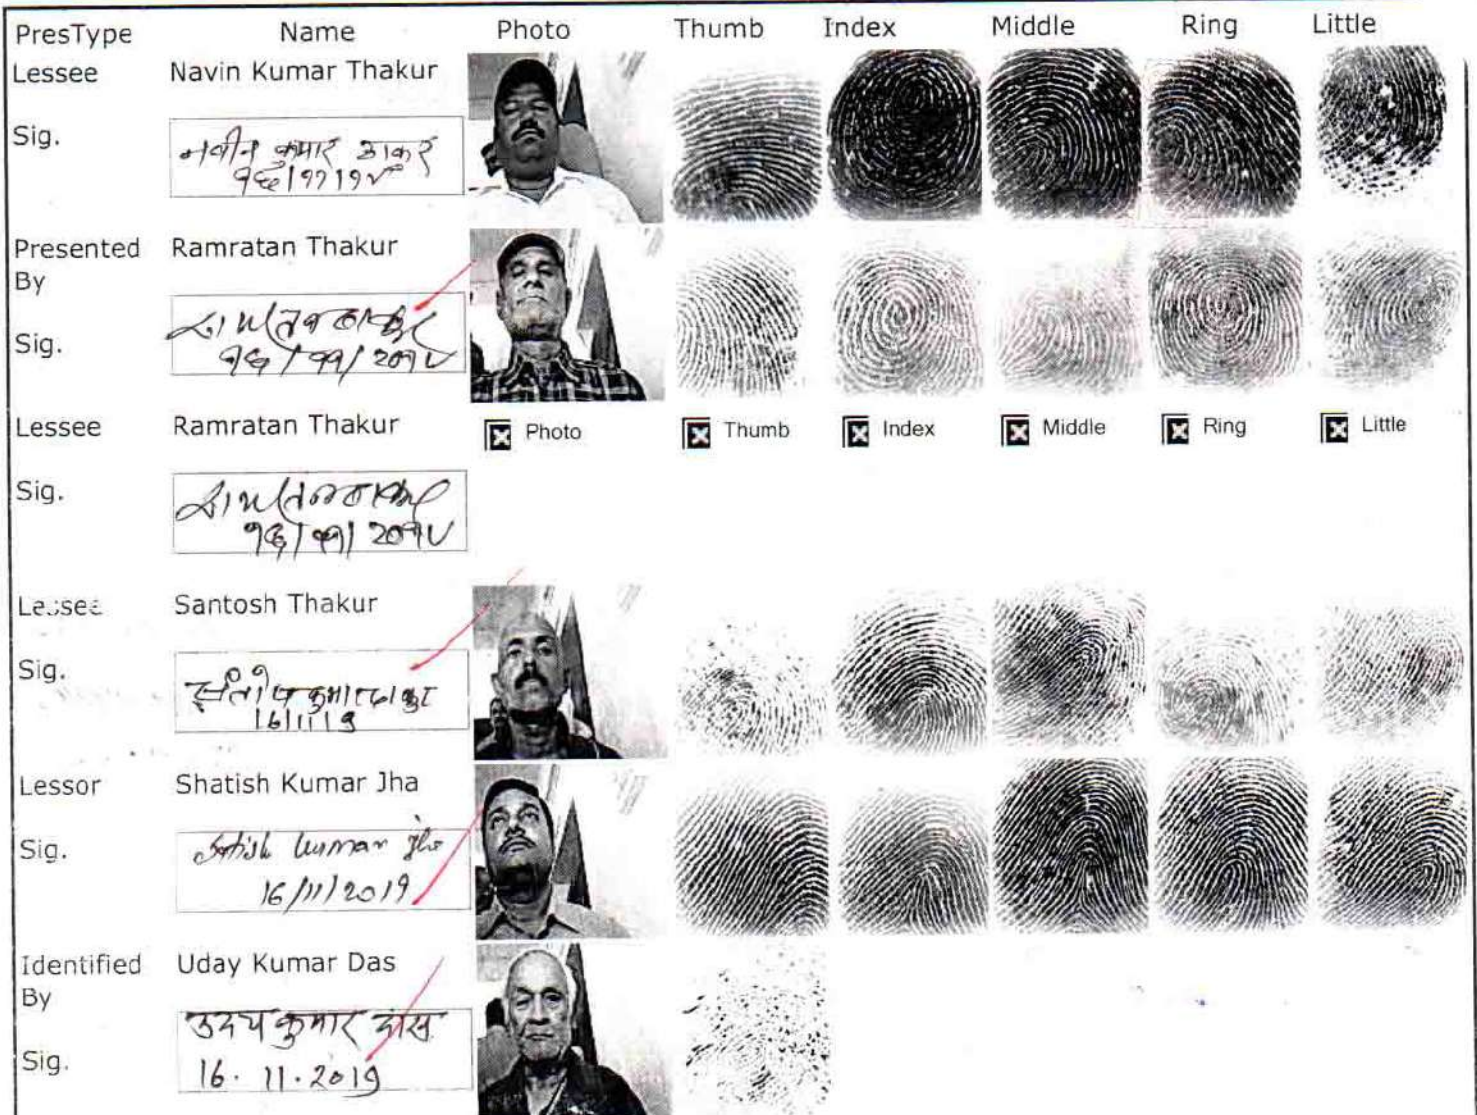 PresType Name Photo Thumb Index Middle Ring Little
Lessee Navin Kumar Thakur
Sig. नवीन कुमार ठाकुर
Presented Ramratan Thakur
By
Sig.
Lessee Ramratan Thakur Photo Thumb Index Middle Ring Little
Sig.
Lessee Santosh Thakur
Sig.
16/11/9
Lessor Shatish Kumar Jha
Sig. Satish kumar Jha
16/11/2019
Identified Uday Kumar Das
By
उदय कुमार दास
Sig. 16.11.2019